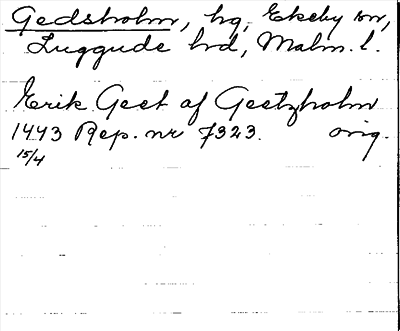 Gedsholm, hg, Ekeby sn,
Luggude hd, Malm. l.
Erik Geet af Geetzholm
1443 Rep. nr 7323. orig.
15/4